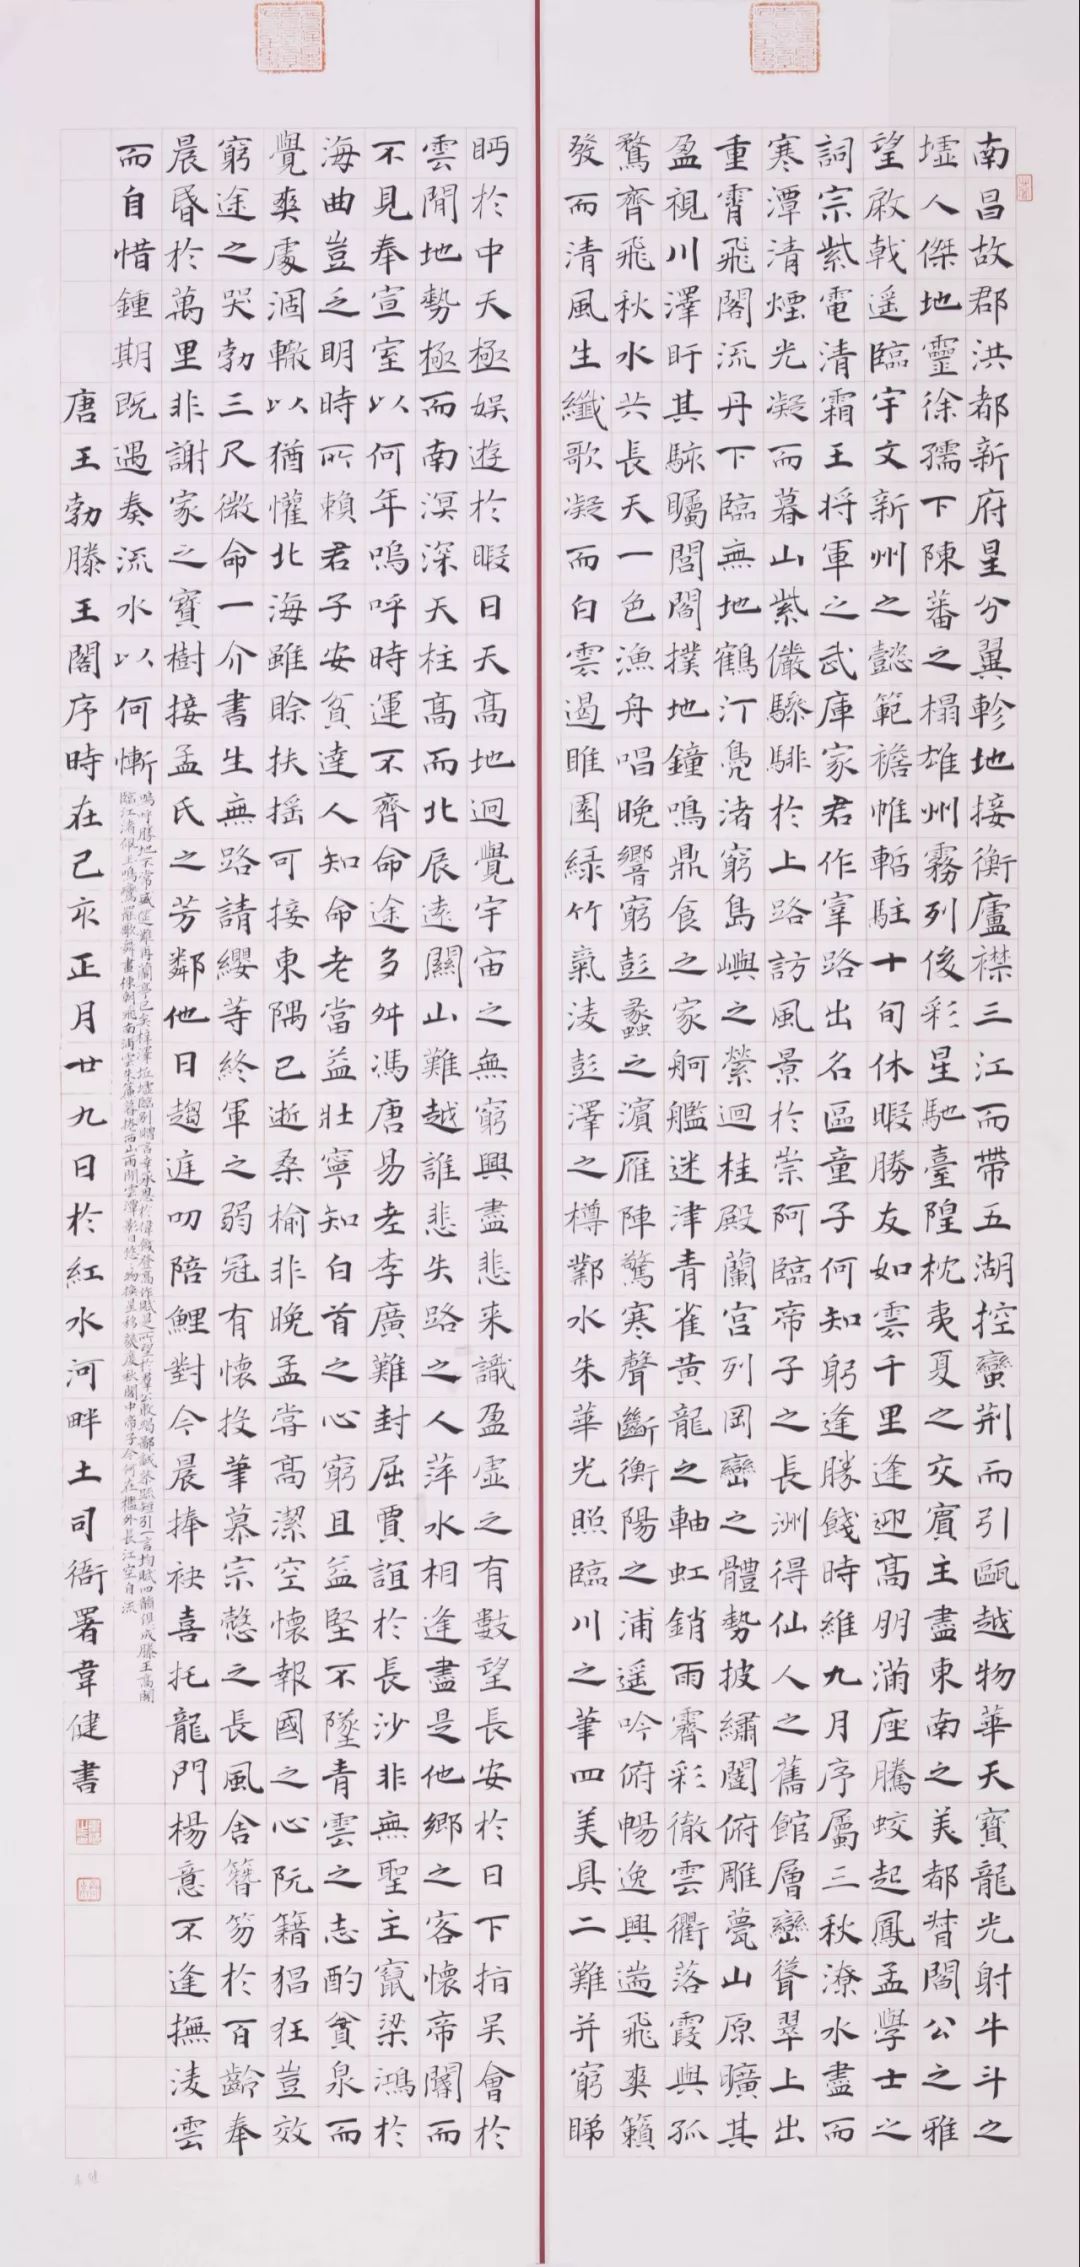 南昌故郡洪都新府星分翼軫地接衡廬襟三江而帶五湖控蠻荆而引甌越物華天寶龍光射牛斗之
墟人傑地靈徐孺下陳蕃之榻雄州霧列俊彩星馳臺隍枕夷夏之交賓主盡東南之美都督閻公之雅
望啟戟遥臨宇文新州之懿範襜帷暫駐十旬休暇勝友如雲千里逢迎高朋滿座騰蛟起鳳孟學士之
詞宗紫電清霜王將軍之武庫家君作宰路出名區童子何知躬逢勝餞時維九月序屬三秋潦水盡而
寒潭清煙光凝而暮山紫儼驂騑於上路訪風景於崇阿臨帝子之長洲得仙人之舊館層巒聳翠上出
重霄飛閣流丹下臨無地鶴汀鳧渚窮島嶼之縈迴桂殿蘭宫列岡巒之體勢披繡闥俯雕甍山原曠其
盈視川澤盱其駭矚閭閻撲地鐘鳴鼎食之家舸艦迷津青雀黃龍之軸虹銷雨霽彩徹雲衢落霞與孤
鶩齊飛秋水共長天一色漁舟唱晚響窮彭蠡之濱雁陣驚寒聲斷衡陽之浦遥吟俯暢逸興遄飛爽籟
發而清風生纖歌凝而白雲遏睢園緑竹氣淩彭澤之樽鄴水朱華光照臨川之筆四美具二難并窮睇
眄於中天極娱遊於暇日天高地迥覺宇宙之無窮興盡悲来識盈虚之有數望長安於日下指吴會於
雲閒地勢極而南溟深天柱高而北辰遠關山難越誰悲失路之人萍水相逢盡是他鄉之客懷帝閽而
不見奉宣室以何年嗚呼時運不齊命途多舛馮唐易老李廣難封屈賈誼於長沙非無聖主竄梁鴻於
海曲豈乏明時所賴君子安貧達人知命老當益壯寧知白首之心窮且益堅不墜青雲之志酌貪泉而
覺爽處涸轍以猶懽北海雖賒扶摇可接東隅已逝桑榆非晚孟嘗高潔空懷報國之心阮籍猖狂豈效
窮途之哭勃三尺微命一介書生無路請纓等終軍之弱冠有懷投筆慕宗慤之長風舍簪笏於百齡奉
晨昏於萬里非謝家之寶樹接孟氏之芳鄰他日趨庭叨陪鯉對今晨捧袂喜托龍門楊意不逢撫淩雲
而自惜鍾期既遇奏流水以何慚
嗚呼勝地不常盛筵難再蘭亭已矣梓澤丘墟臨别贈言幸承恩於偉餞登高作賦是所望於羣公敢竭鄙誠恭疏短引一言均賦四韻俱成滕王高閣
臨江渚佩玉鳴鸞罷歌舞畫棟朝飛南浦雲朱簾暮捲西山雨閒雲潭影日悠悠物换星移幾度秋閣中帝子今何在檻外長江空自流
唐王勃滕王閣序時在己亥正月廿九日於紅水河畔土司衙署韋健書